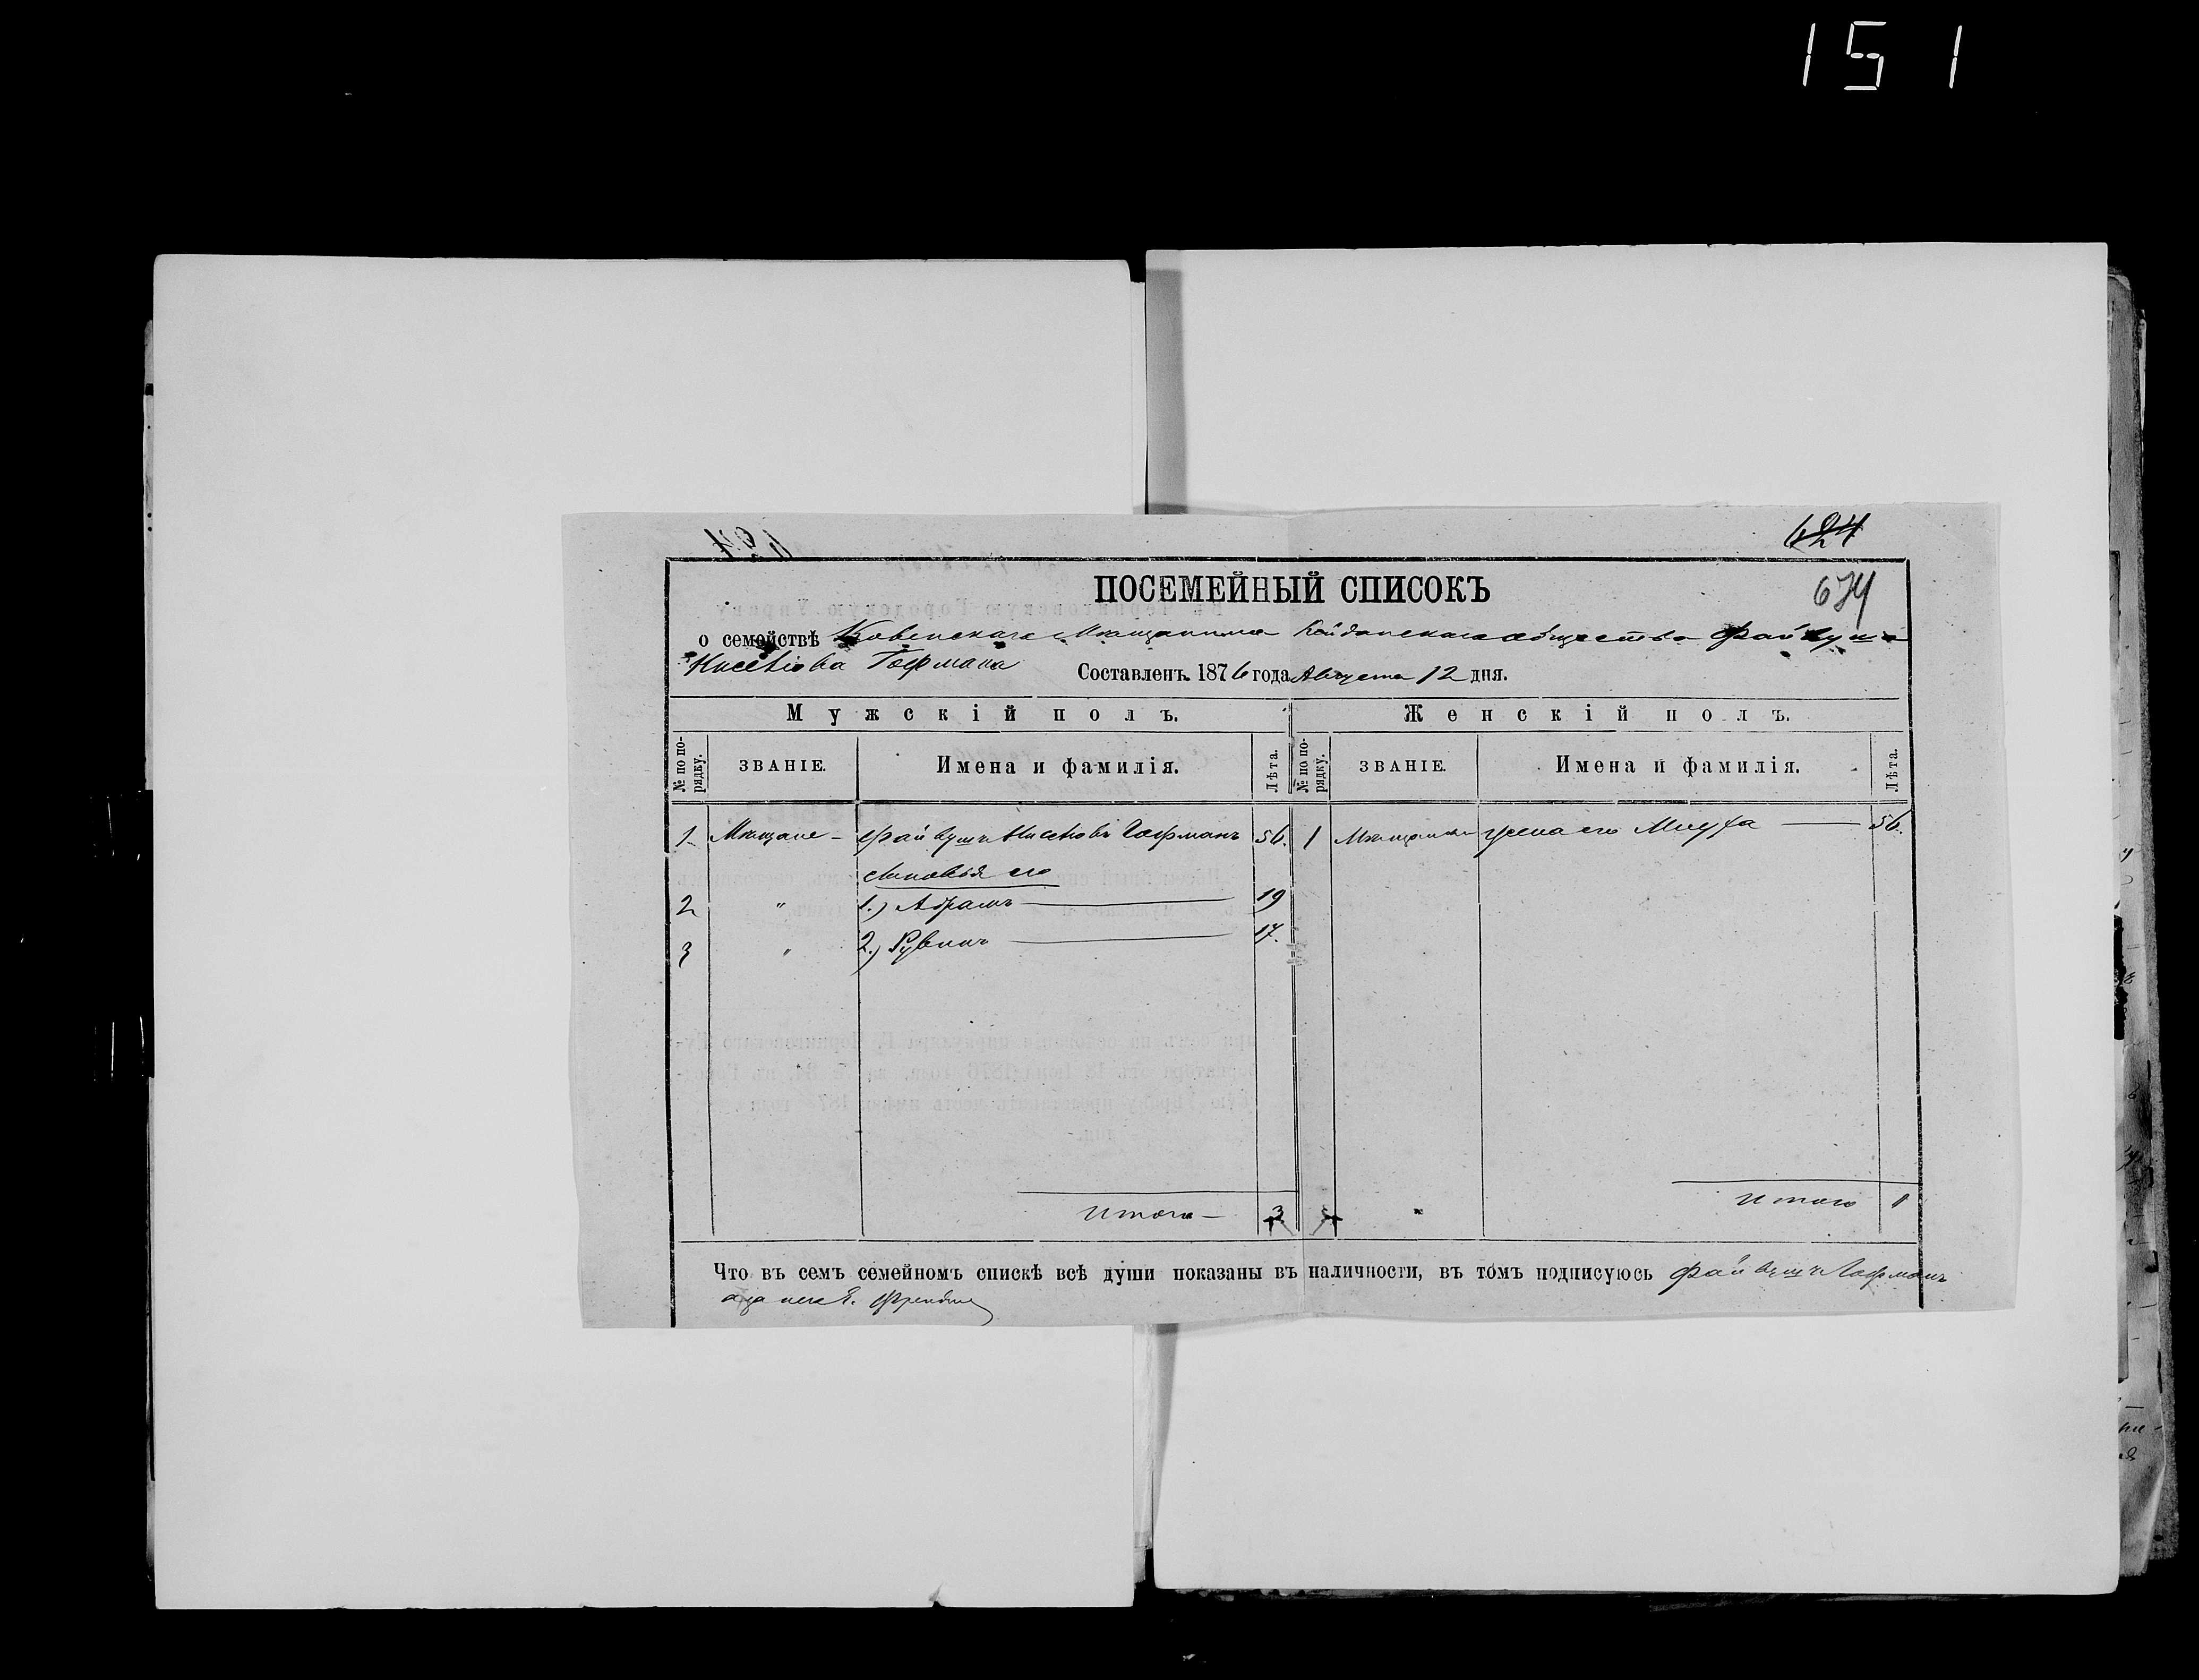 151
624
674
ПОСЕМЕЙНЫЙ СПИСОКЪ
о семействѣ Ковенскаго Мѣщанина Кейданскаго общества Файвуша
Гофмана Составленъ 1876 года Августа 12 дня.
Мужскій полъ. Женскій полъ.
№ по порядку. ЗВАНІЕ. Имена и фамилія. Лѣта. № по порядку. ЗВАНІЕ. Имена и фамилія. Лѣта.
1 Мѣщане - Файвушъ Гофманъ 56. 1 Мѣщанка жена его 56.
Сыновья его
2 " 1.) Абрамъ 19
3 " 2.) Рувинъ 17.
Итого - 3 Итого 1
Что въ семъ семейномъ спискѣ всѣ души показаны въ наличности, въ томъ подписуюсь Файвушъ Гофманъ